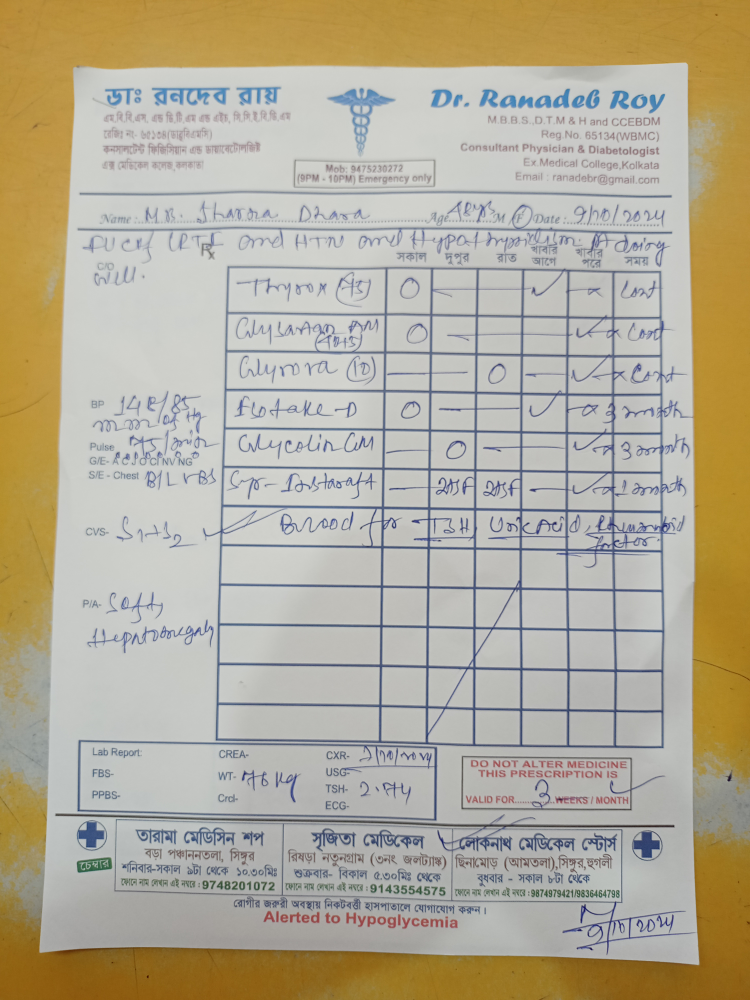 ডাঃ রনদেব রায়
এম.বি.বি.এস, এন্ড ডি.টি.এম এন্ড এইচ, সি.সি.ই.বি.ডি.এম
রেজিঃ নং- ৬৫১৩৪(ডাব্লুবিএমসি)
কনসালটেন্ট ফিজিসিয়ান এন্ড ডায়াবেটোলজিষ্ট
এক্স মেডিকেল কলেজ,কলকাতা
Mob: 9475230272
(9PM - 10PM) Emergency only
Dr. Ranadeb Roy
M.B.B.S.,D.T.M & H and CCEBDM
Reg.No. 65134(WBMC)
Consultant Physician & Diabetologist
Ex.Medical College,Kolkata
Email : ranadebr@gmail.com
Name: Dhara Age M F Date: 9/10/2024
and HTN and doing
C/O well.
Rx
সকাল দুপুর রাত খাবার আগে খাবার পরে সময়
Thyrox (75) O — — ✓ — x Cont
O — ✓ x Cont
(10) — — O — ✓ x Cont
O — ✓ — x 3 month
— O — ✓ x 3 month
— 2TSF 2TSF — ✓ x 1 month
Blood for TSH, Uric Acid, Rheumatoid factor.
BP /85
mm of Hg
Pulse 75/min
G/E- A C J O Cl NV NG
S/E - Chest B/L VBS
CVS- S1+S2
P/A- Soft,
Hepatomegaly
Lab Report: CREA- CXR- 9/10/2024
FBS- WT- 76 kg USG-
PPBS- Crcl- TSH- 2.74
ECG-
DO NOT ALTER MEDICINE
THIS PRESCRIPTION IS
VALID FOR 3 WEEKS / MONTH
চেম্বার
তারামা মেডিসিন শপ
বড়া পঞ্চাননতলা, সিঙ্গুর
শনিবার-সকাল ৯টা থেকে ১০.৩০মিঃ
ফোনে নাম লেখান এই নম্বরে : 9748201072
সৃজিতা মেডিকেল
রিষড়া নতুনগ্রাম (৩নং জলট্যাঙ্ক)
শুক্রবার- বিকাল ৫.৩০মিঃ থেকে
ফোনে নাম লেখান এই নম্বরে : 9143554575
লোকনাথ মেডিকেল স্টোর্স
ছিনামোড় (আমতলা),সিঙ্গুর,হুগলী
বুধবার - সকাল ৮টা থেকে
ফোনে নাম লেখান এই নম্বরে : 9874979421/9836464798
রোগীর জরুরী অবস্থায় নিকটবর্ত্তী হাসপাতালে যোগাযোগ করুন।
Alerted to Hypoglycemia
9/10/2024